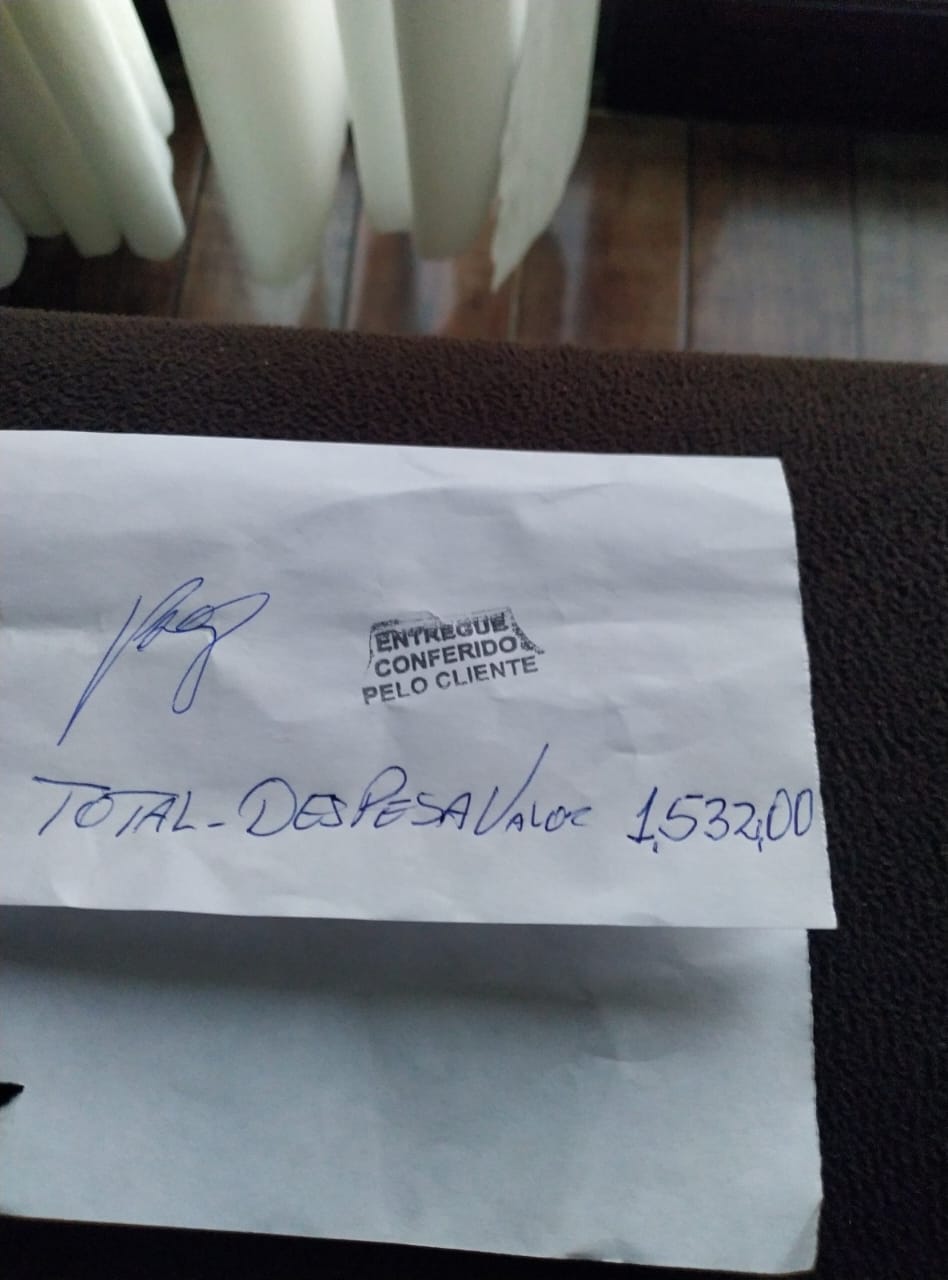 ENTREGUE
CONFERIDO
PELO CLIENTE
TOTAL-DESPESA VALOR 1,532,00